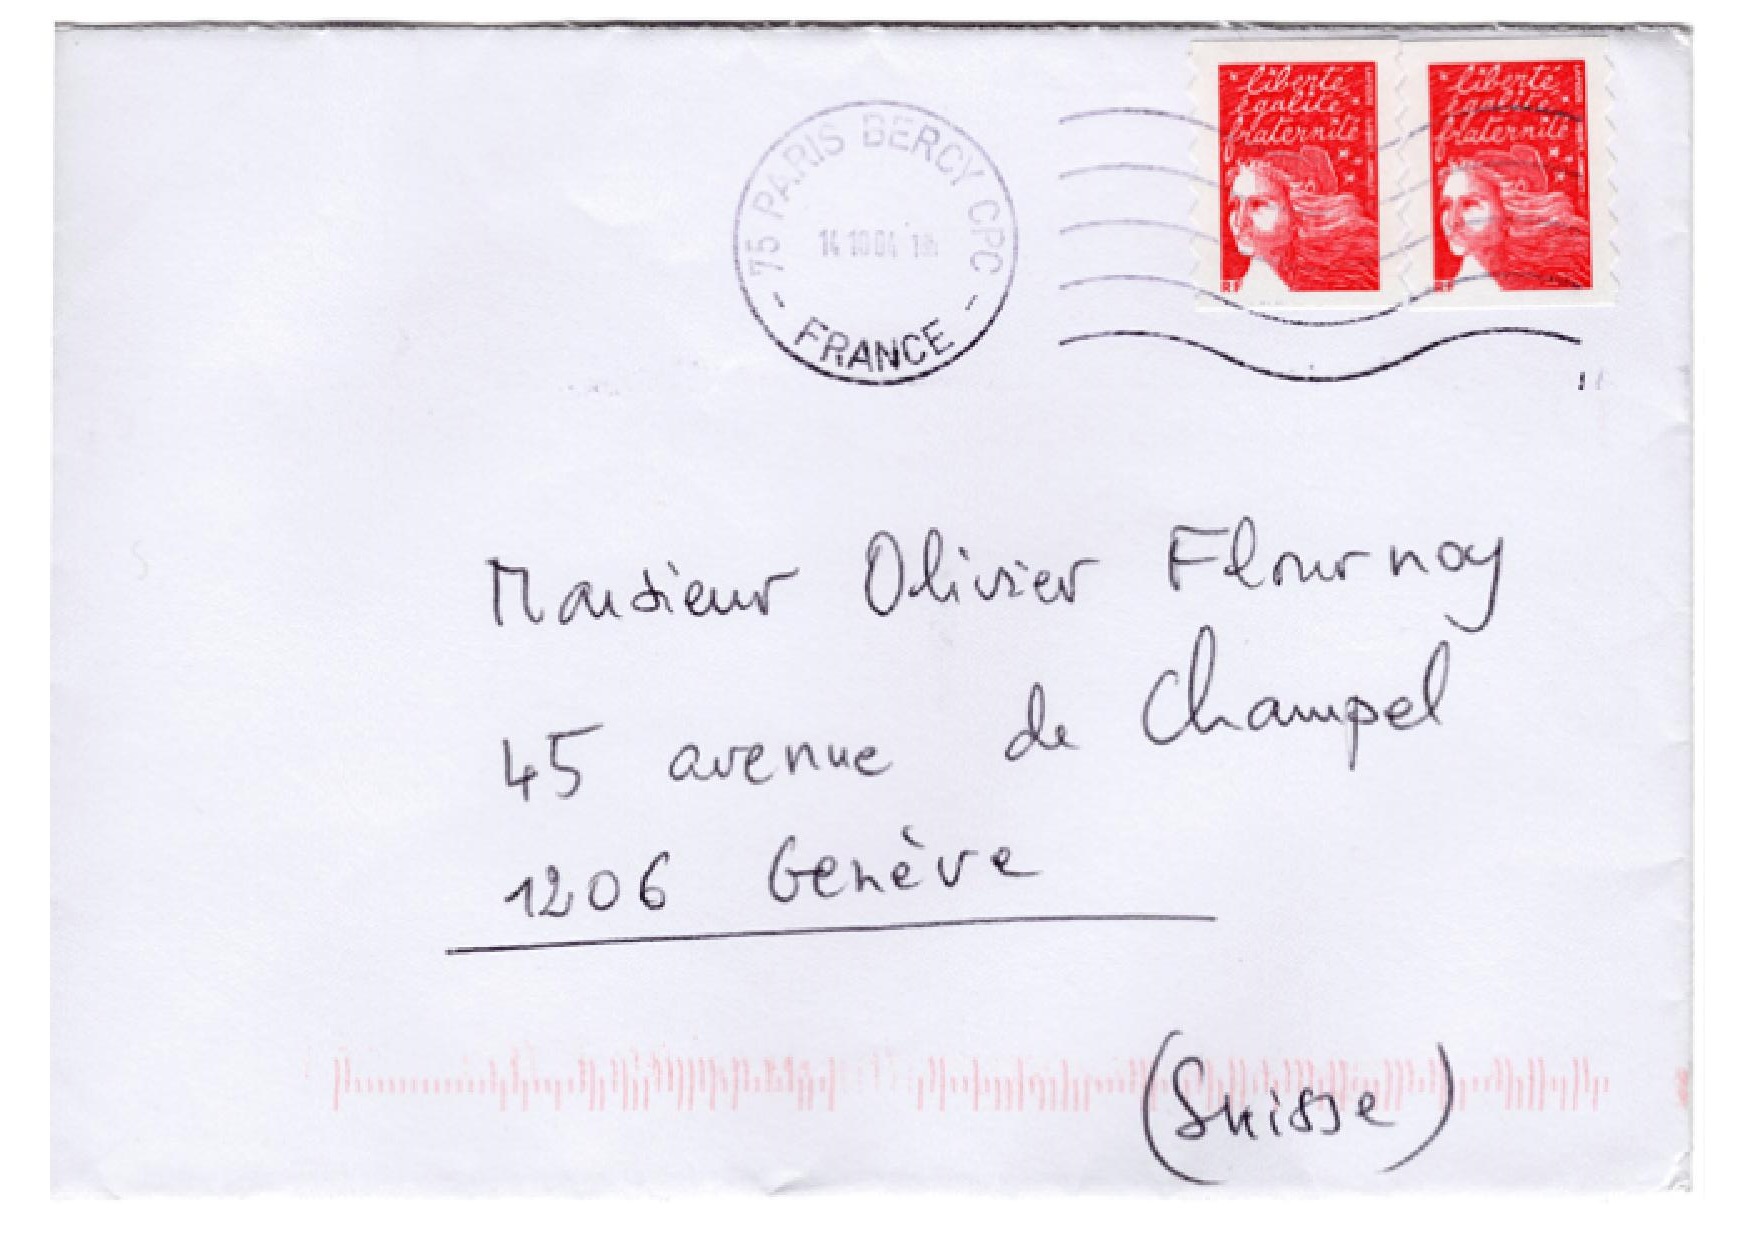 liberté égalité fraternité
liberté égalité fraternité
RF
RF
75 PARIS BERCY CPC
14 10 04
- FRANCE -
Monsieur Olivier Flournoy
45 avenue de Champel
1206 Genève
(Suisse)